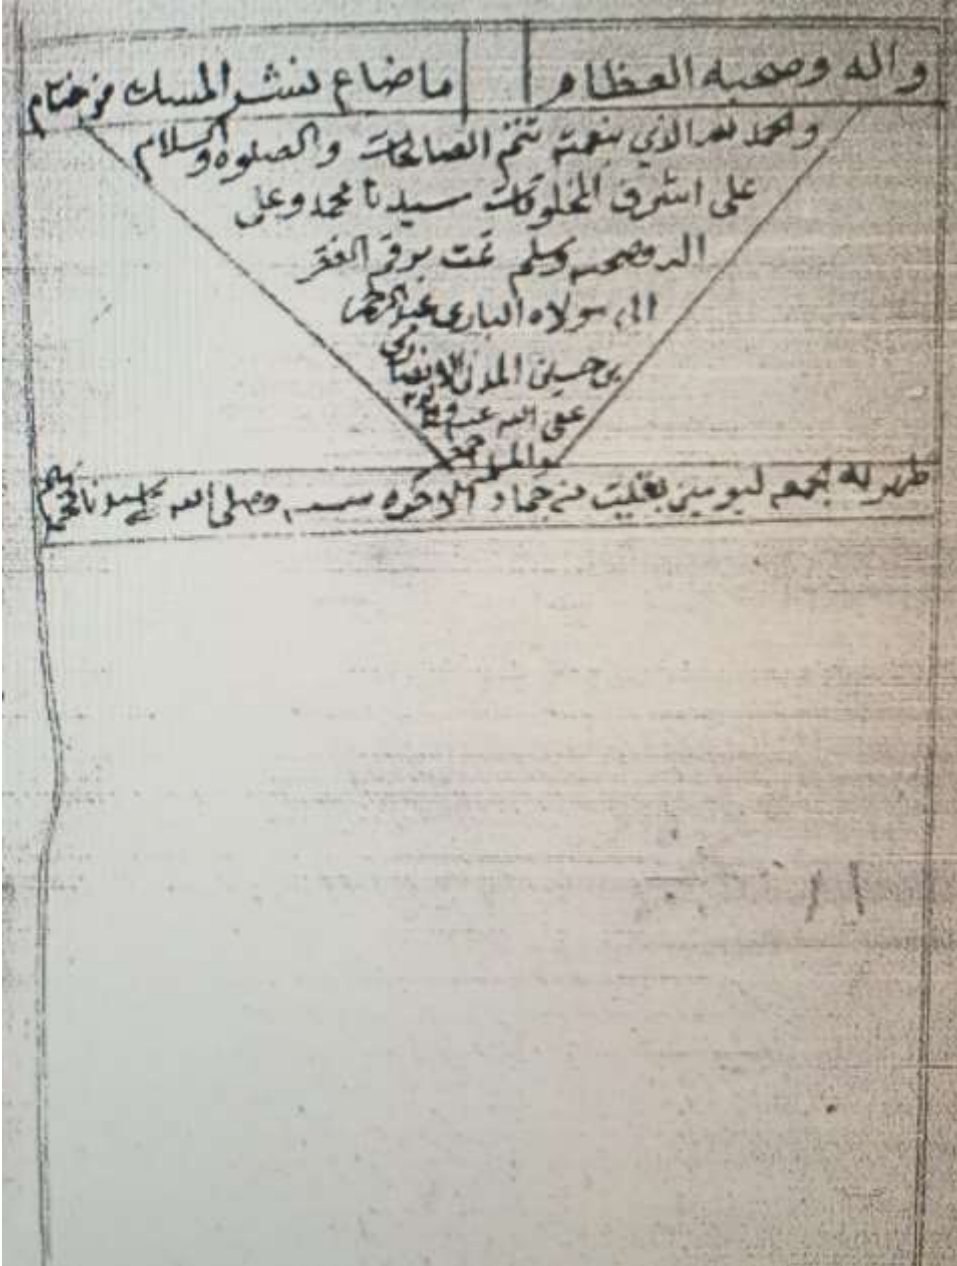 وآله وصحبه العظام ماضاع نشر المسك من ختام
والحمد لله الذي بنعمته تتم الصالحات والصلوة والسلام
على اشرف المخلوقات سيدنا محمد وعلى
اله وصحبه وسلم تمت برقم الفقر
الى مولاه الباري عبدالرحمن
بن حسين المدني الانصاري
عفى الله عنه
والمسلمين
بجمعه ليومين بقيت من جماد الاخره سنه وصلى الله على سيدنا محمد